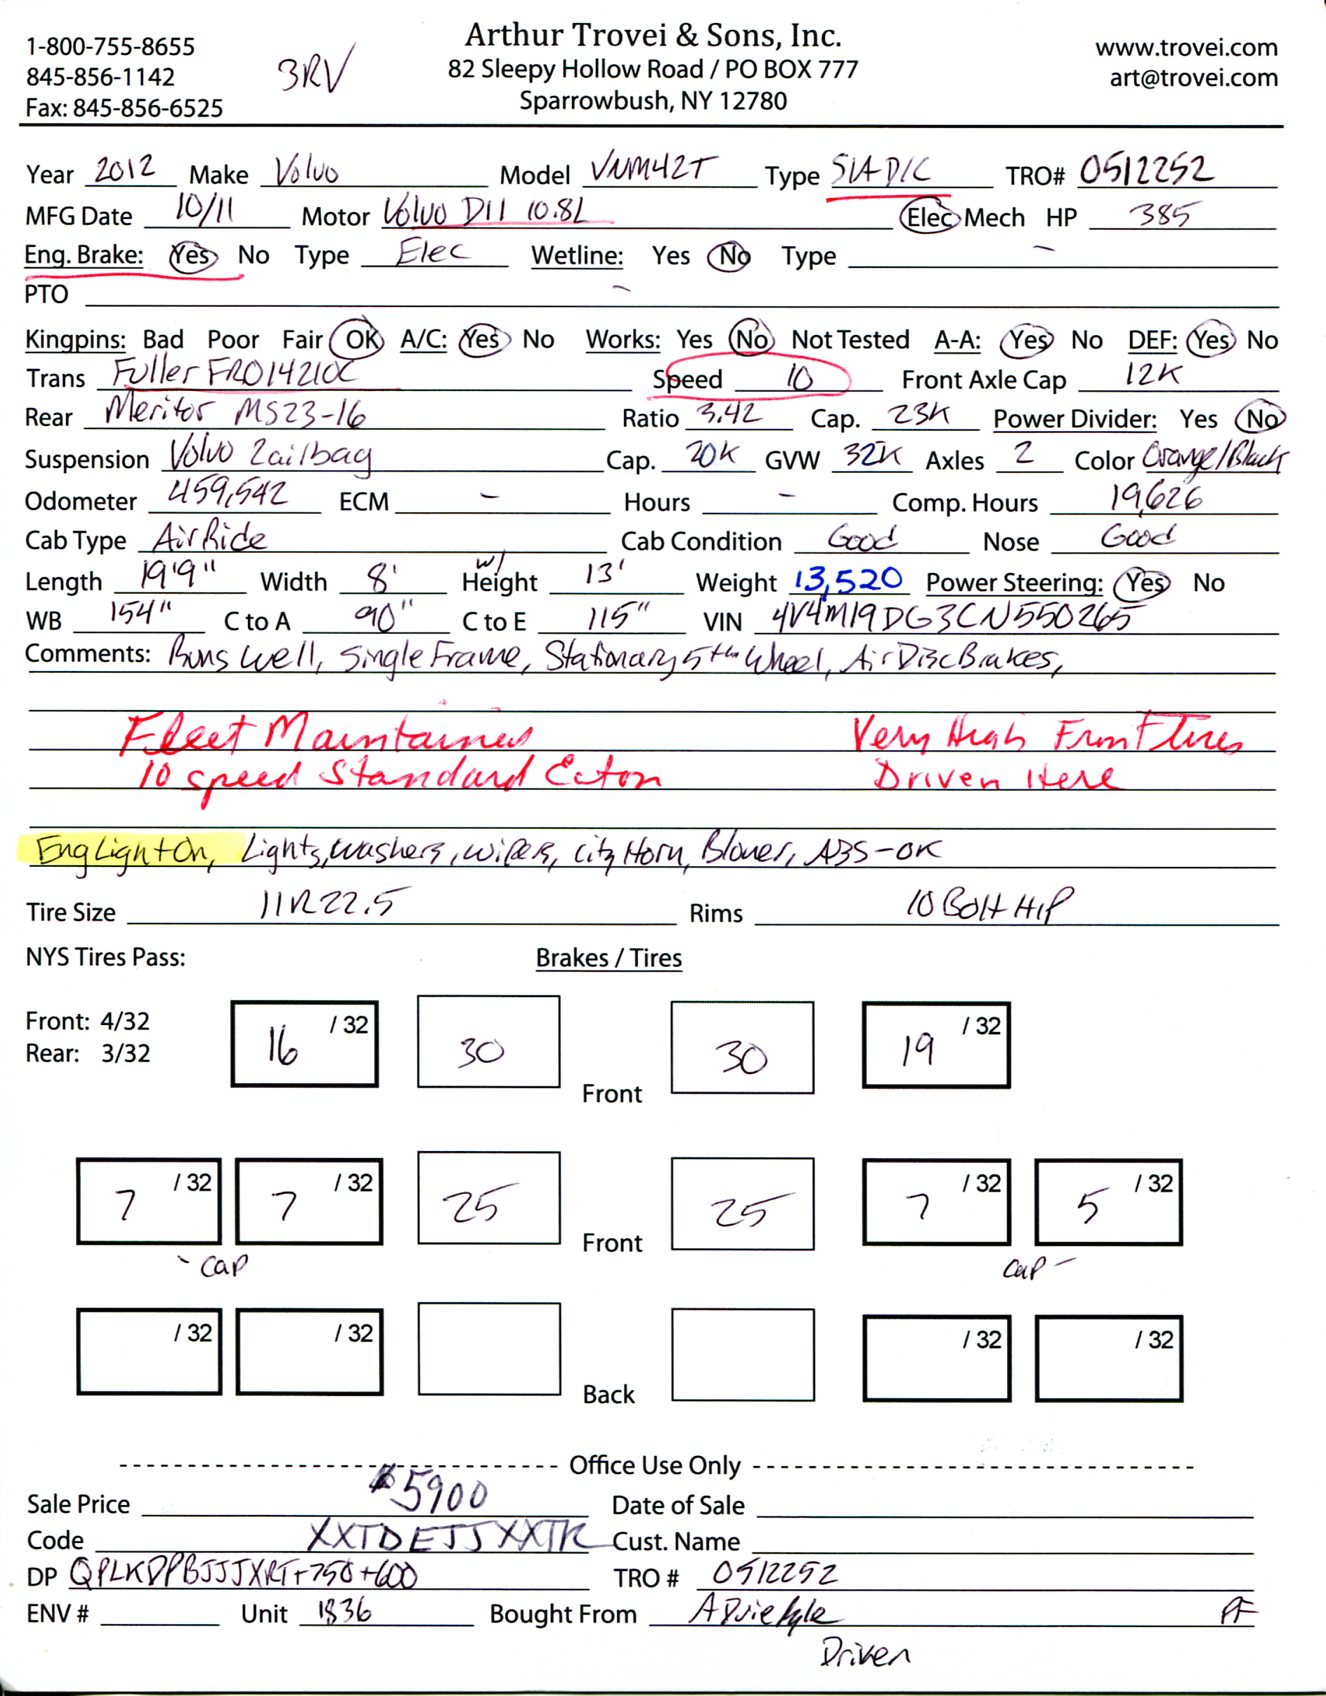 1-800-755-8655
845-856-1142
Fax: 845-856-6525
3RV
Arthur Trovei & Sons, Inc.
82 Sleepy Hollow Road / PO BOX 777
Sparrowbush, NY 12780
www.trovei.com
art@trovei.com
Year 2012 Make Volvo Model VNM42T Type S/A D/C TRO# 0512252
MFG Date 10/11 Motor Volvo D11 10.8L Elec Mech HP 385
Eng. Brake: Yes No Type Elec Wetline: Yes No Type –
PTO –
Kingpins: Bad Poor Fair OK A/C: Yes No Works: Yes No Not Tested A-A: Yes No DEF: Yes No
Trans Fuller FRO14210C Speed 10 Front Axle Cap 12K
Rear Meritor MS23-16 Ratio 3.42 Cap. 23K Power Divider: Yes No
Suspension Volvo 2airbag Cap. 20K GVW 32K Axles 2 Color Orange/Black
Odometer 459,542 ECM – Hours – Comp. Hours 19,626
Cab Type AirRide Cab Condition Good Nose Good
Length 19'9" Width 8' w/ Height 13' Weight 13,520 Power Steering: Yes No
WB 154" C to A 90" C to E 115" VIN 4V4M19DG3CN550265
Comments: Runs Well, Single Frame, Stationary 5th Wheel, Air Disc Brakes,
Fleet Maintained Very High Front Tires
10 speed Standard Eaton Driven Here
Eng Light On, Lights, Washers, Wipers, City Horn, Blower, ABS-OK
Tire Size 11R22.5 Rims 10 Bolt H/P
NYS Tires Pass: Brakes / Tires
Front: 4/32
Rear: 3/32
16 /32 30 Front 30 19 /32
7 /32 7 /32 25 Front 25 7 /32 5 /32
- Cap Cap -
/32 /32 Back /32 /32
Office Use Only
Sale Price $5900 Date of Sale
Code XXTDETJXXTK Cust. Name
DP QPLKDPBJJJXRT+750+600 TRO # 0512252
ENV # Unit 1836 Bought From PF
Driven